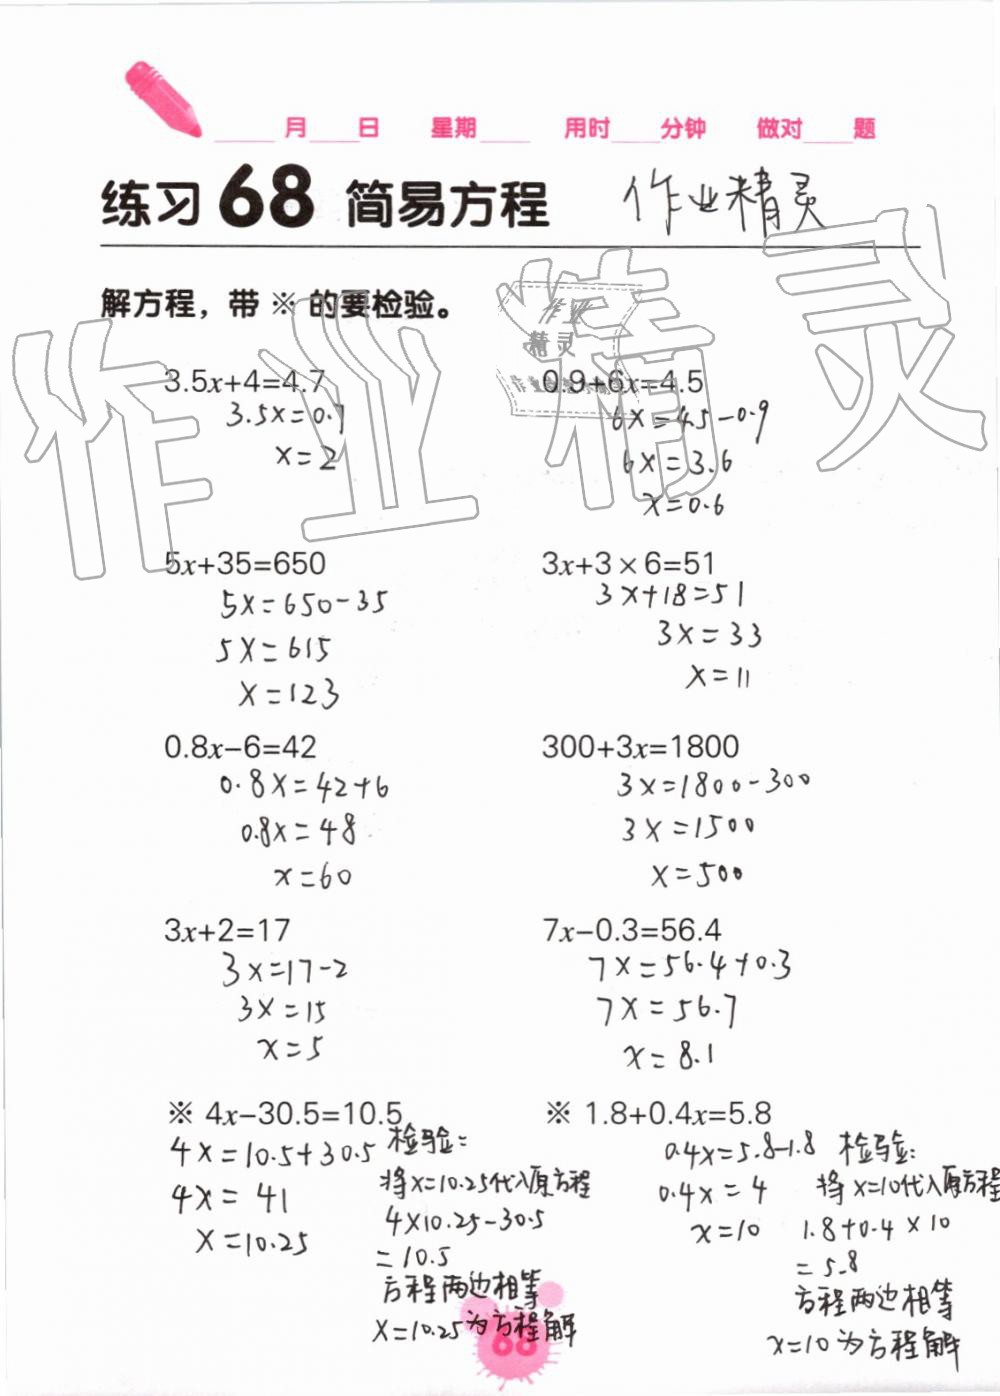 ____月____日 星期____ 用时____分钟 做对____题
练习 68 简易方程 作业精灵
解方程，带 ※ 的要检验。
作业精灵
作业
精灵
3.5x+4=4.7
3.5x=0.7
x=2
0.9+6x=4.5
6x=4.5-0.9
6x=3.6
x=0.6
5x+35=650
5x=650-35
5x=615
x=123
3x+3×6=51
3x+18=51
3x=33
x=11
0.8x-6=42
0.8x=42+6
0.8x=48
x=60
300+3x=1800
3x=1800-300
3x=1500
x=500
3x+2=17
3x=17-2
3x=15
x=5
7x-0.3=56.4
7x=56.4+0.3
7x=56.7
x=8.1
※ 4x-30.5=10.5
4x=10.5+30.5
4x=41
x=10.25
检验：
将x=10.25代入原方程
4×10.25-30.5
=10.5
方程两边相等
x=10.25为方程解
※ 1.8+0.4x=5.8
0.4x=5.8-1.8
0.4x=4
x=10
检验：
将x=10代入原方程
1.8+0.4×10
=5.8
方程两边相等
x=10为方程解
68